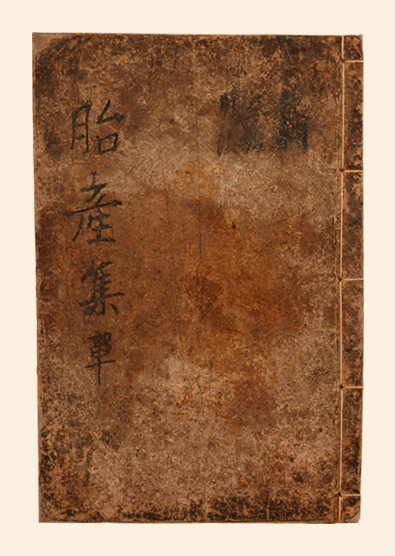 胎產集單